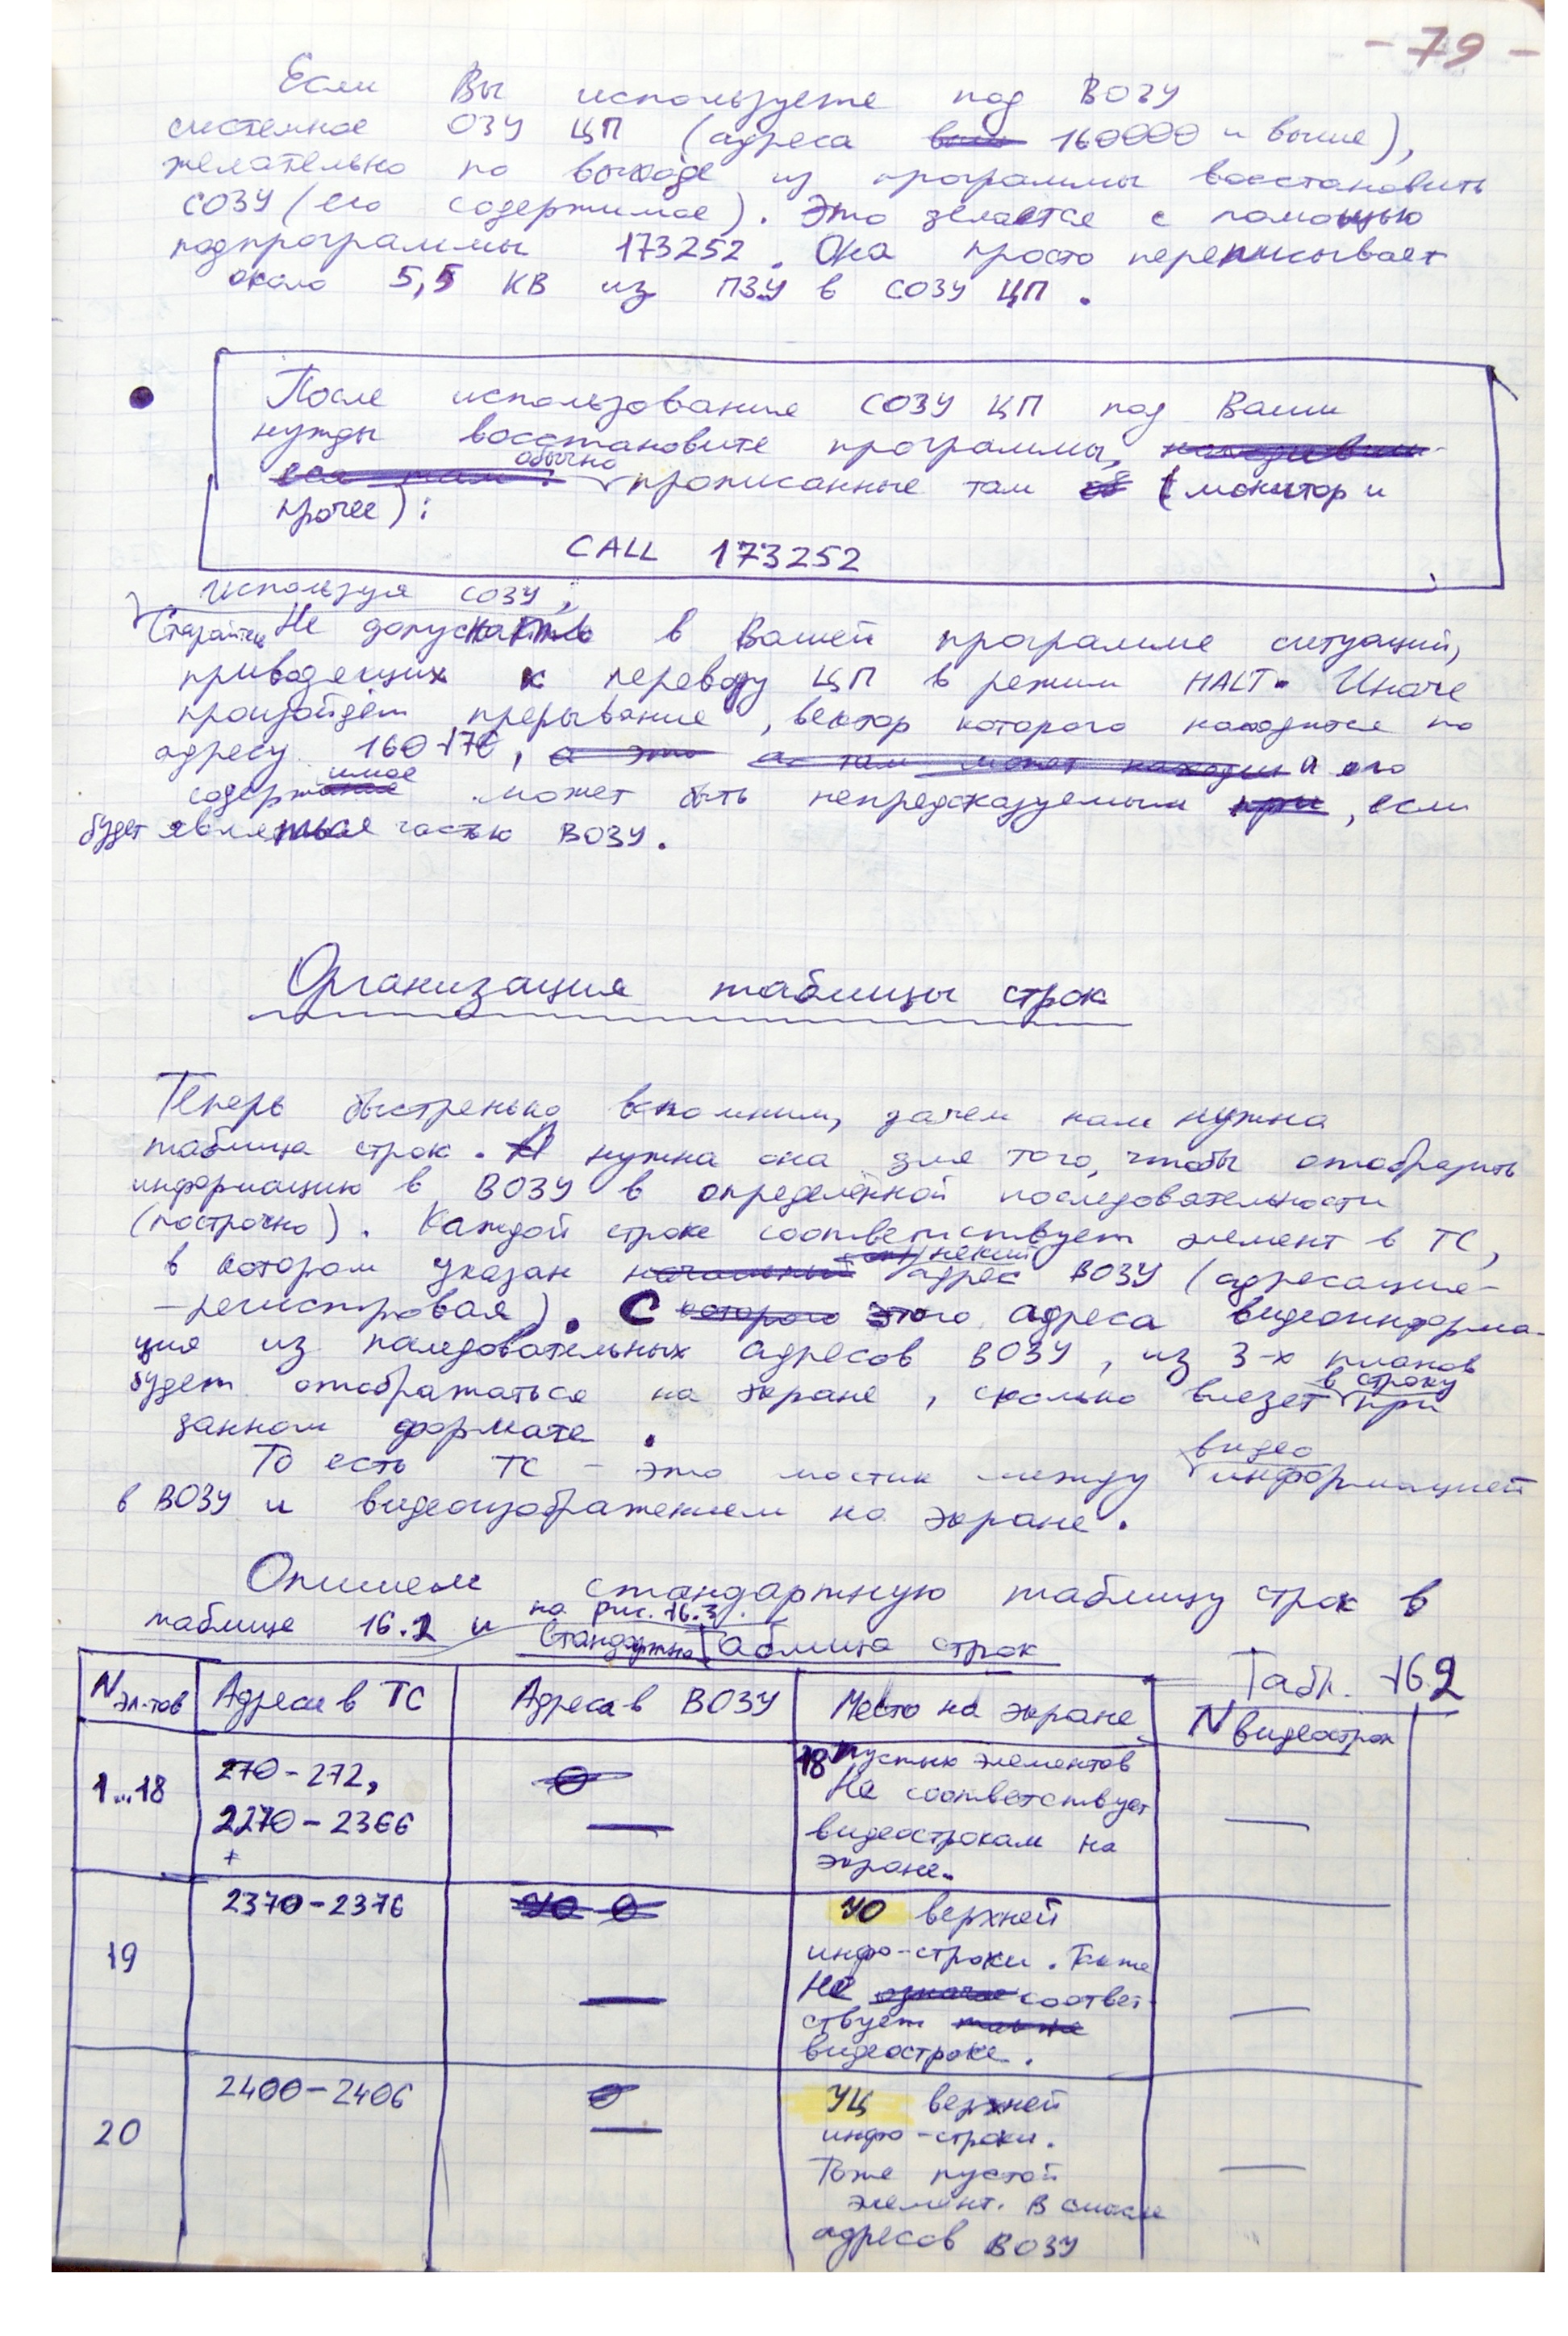 - 79 -
Если Вы используете под ВОЗУ
системное ОЗУ ЦП (адреса 160000 и выше),
желательно по выходе из программы восстановить
СОЗУ (его содержимое). Это делается с помощью
подпрограммы 173252. Она просто переписывает
около 5,5 КВ из ПЗУ в СОЗУ ЦП.
После использования СОЗУ ЦП под Ваши
нужды восстановите программы,
обычно прописанные там (монитор и
прочее):
CALL 173252
Используя СОЗУ,
Старайтесь Не допускать в Вашей программе ситуаций,
приводящих к переводу ЦП в режим HALT. Иначе
произойдёт прерывание, вектор которого находится по
адресу 160170, а его
содержимое может быть непредсказуемым, если
будет являться частью ВОЗУ.
Организация таблицы строк
Теперь быстренько вспомним, зачем нам нужна
таблица строк. А нужна она для того, чтобы отобразить
информацию в ВОЗУ в определённой последовательности
(построчно). Каждой строке соответствует элемент в ТС,
в котором указан некий адрес ВОЗУ (адресация-
-регистровая). С этого адреса видеоинформа-
ция из последовательных адресов ВОЗУ, из 3-х планов
будет отображаться на экране, сколько влезет в строку при
данном формате.
То есть ТС - это мостик между видео информацией
в ВОЗУ и видеоизображением на экране.
Опишем стандартную таблицу строк в
таблице 16.2 и на рис. 16.3.
Стандартная Таблица строк
Табл. 16.2
N эл-тов Адреса в ТС Адреса в ВОЗУ Место на экране N видеострок
1...18 270-272, 2270-2366 + — 18 пустых элементов
Не соответствует
видеострокам на
экране. —
19 2370-2376 — УО верхней
инфо-строки. Также
не соответ-
ствует
видеостроке. —
20 2400-2406 — УЦ верхней
инфо-строки.
Тоже пустой
элемент. В смысле
адресов ВОЗУ —